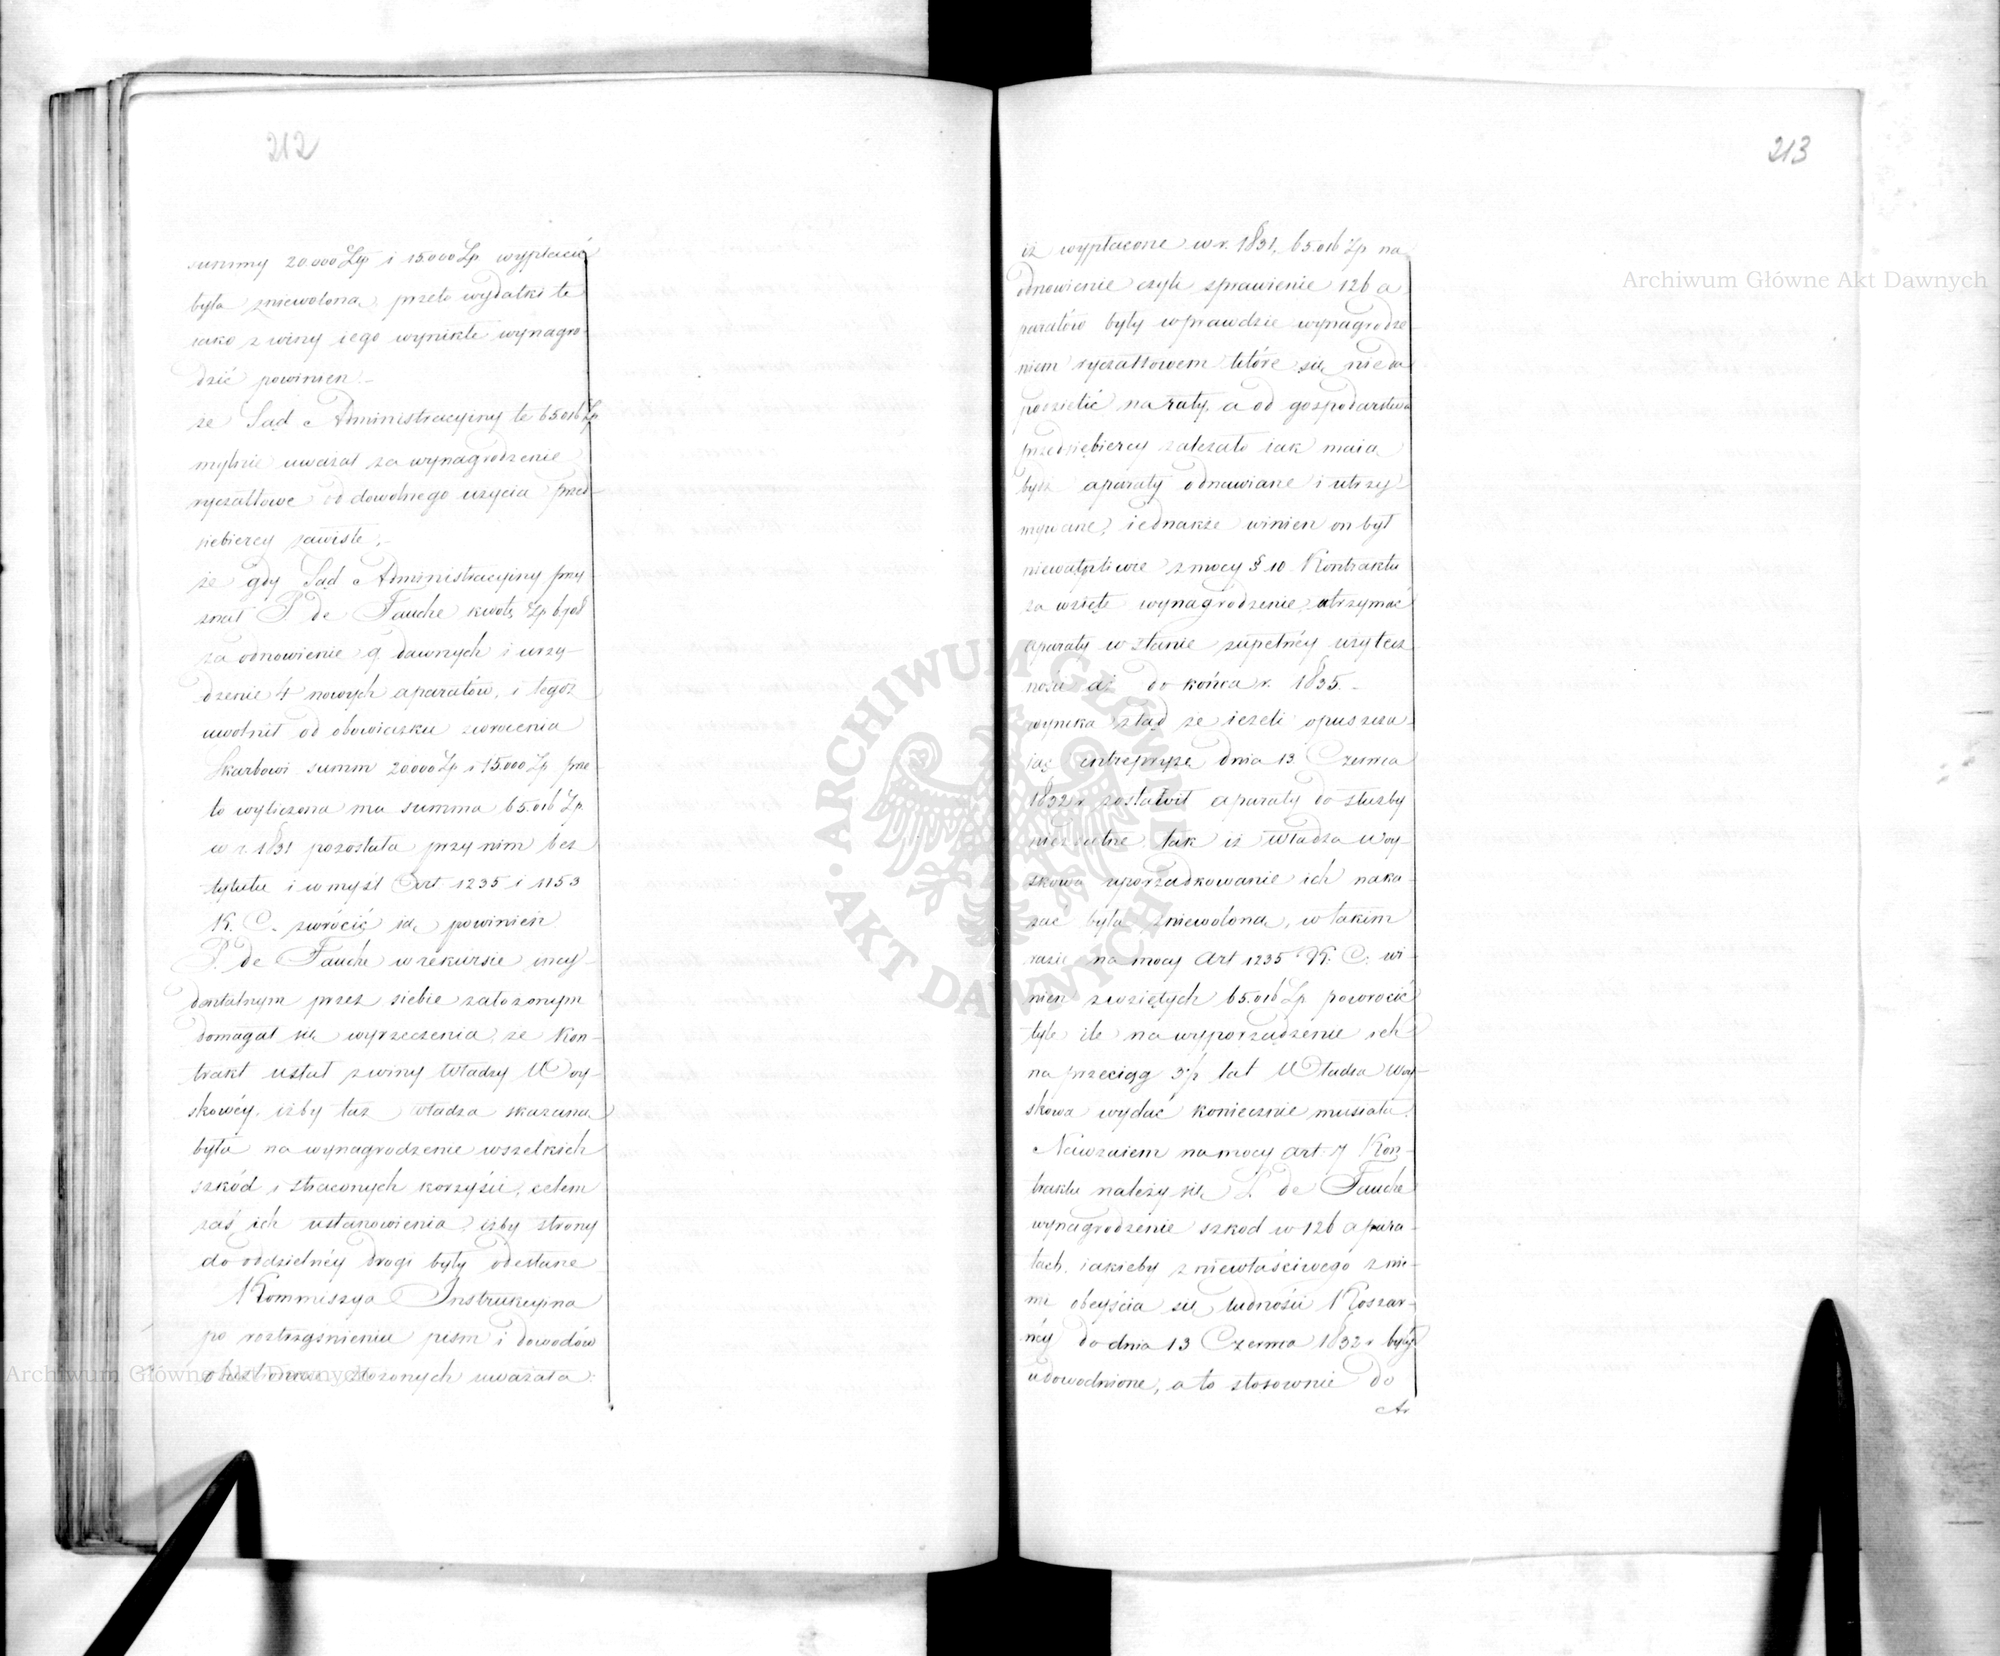 212
summy 20000 Złp i 15000 Zł wypłacić
była zniewolona, przeto wydatki te
iako z winy iego wynikłe wynagro-
dzić powinien.
że Sąd Administracyiny te 65.016 Zp
mylnie uważał za wynagrodzenie
ryczałtowe od dowolnego użycia przed-
siebiercy zawisłe,
że gdy Sąd Administracyiny przy-
znał P. de Fauche kwotę Zp
za odnowienie 9. dawnych i urzą-
dzenie 4 nowych aparatów, i tegoż
uwolnił od obowiązku zwrócenia
Skarbowi summ 20000 Zp i 15.000 Zp prze-
to wyliczona mu summa 65.016 Zp
w r. 1831 pozostała przy nim bez
tytułu i w myśl Art 1235 i 1153
K. C. zwrócić ią powinien.
P. de Fauche w rekursie incy-
dentalnym przez siebie założonym
domagał się wyrzeczenia, że Kon-
trakt ustał z winy Władzy Woy-
skowéy, iżby taż Władza skazana
była na wynagrodzenie wszelkich
szkód i straconych korzyści, celem
zaś ich ustanowienia, iżby strony
do oddzielnéy drogi były odesłane
Kommissya Instrukcyina
po roztrząśnieniu pism i dowodów
obustronnie złożonych uważała:
213
iż wypłacone w r. 1831, 65.016 Zp na
odnowienie czyli sprawienie 126 a
paratów były wprawdzie wynagrodze-
niem ryczałtowem które się nieda
podzielić na raty, a od gospodarstwa
przedsiębiercy zależało iak maią
bydź aparaty odnawiane i utrzy-
mywane, iednakże winien on był
niewątpliwie z mocy § 10 Kontraktu
za wzięte wynagrodzenie utrzymać
aparaty w stanie zupełnéy użytecz
ności aż do końca r. 1835.
wynika ztąd że ieżeli opuszcza
iąc entrepryzę dnia 13 Czerwca
1832 r zostawił aparaty do służby
niezdatne tak iż Władza Woy-
skowa uporządkowanie ich naka-
zać była zniewolona, w takim
razie na mocy Art 1235 K. C. wi-
nien z wziętych 65.016 Zp powrócić
tyle ile na wyporządzenie ich
na przeciąg lat Władza Woy-
skowa wydać koniecznie musiała.
Nawzaiem na mocy art. 7 Kon-
traktu należy się P. de Fauche
wynagrodzenie szkod w 126 apara-
tach, iakieby z niewłaściwego z nie-
mi obeyścia się ludności Koszar-
néy do dnia 13 Czerwca 1832 r były
udowodnione, a to stosownie do
Ar
Archiwum Główne Akt Dawnych
Archiwum Główne Akt Dawnych
ARCHIWUM GŁÓWNE · AKT DAWNYCH ·